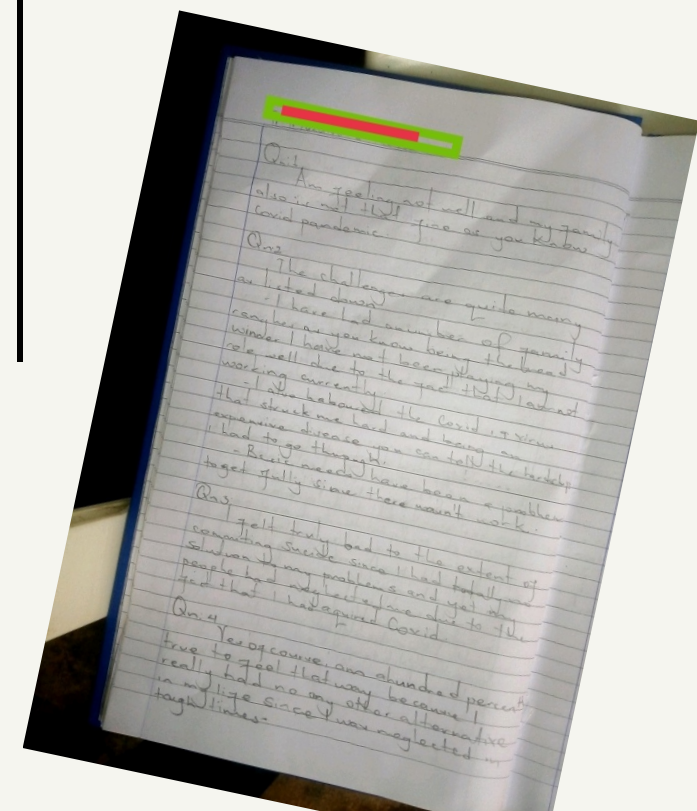 Qn.1
Am feeling not well and my family
also is not that fine as you know
covid pandemic.
Qn.2
The challenges are quite many
as listed down
- I have had a number of family
as you know being the bread
winner I have not been playing my
role well due to the fact that I am not
working currently.
- I also the Covid 19 virus
that struck me hard and being an
expensive disease you can tell the hardship
I had to go through.
- Basic needs have been a problem
to get fully since there wasn't work.
Qn.3
I felt truly bad to the extent of
suicide since I had totally no
solution to my problems and yet my
people had me due to the
fact that I had acquired Covid
Qn.4
Yes of course, am a hundred percent
true to feel that way because I
really had no any other alternative
in my life since I was neglected in
tough times.